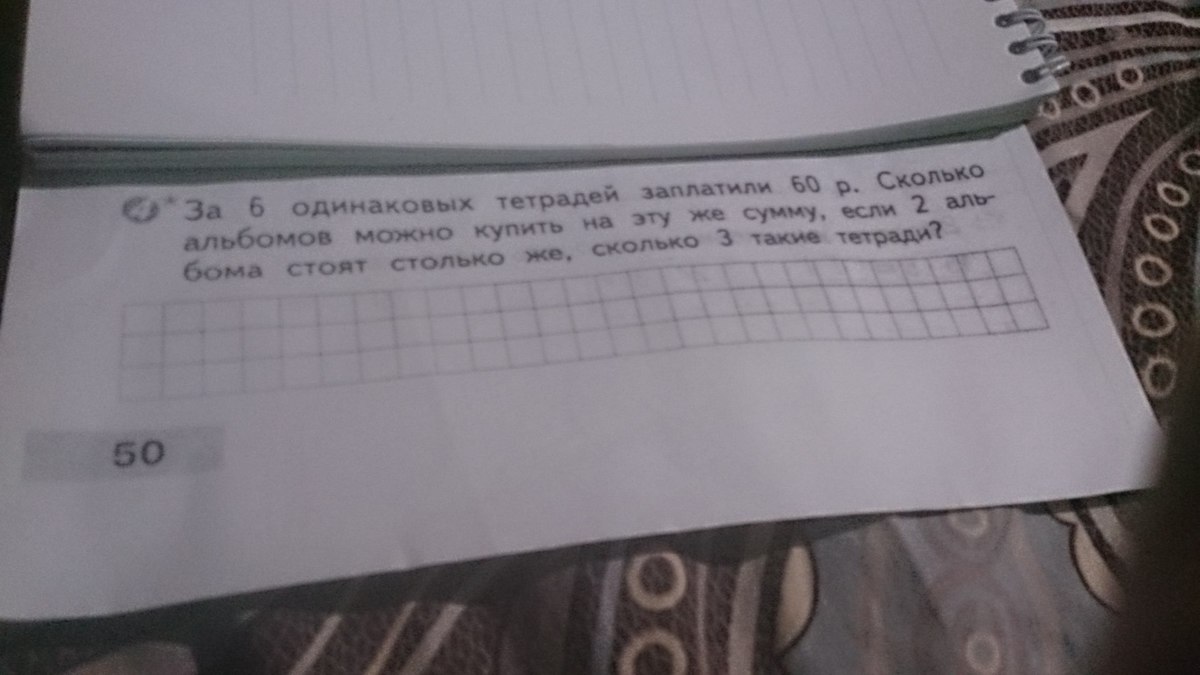 * За 6 одинаковых тетрадей заплатили 60 р. Сколько
альбомов можно купить на эту же сумму, если 2 аль-
бома стоят столько же, сколько 3 такие тетради?
50